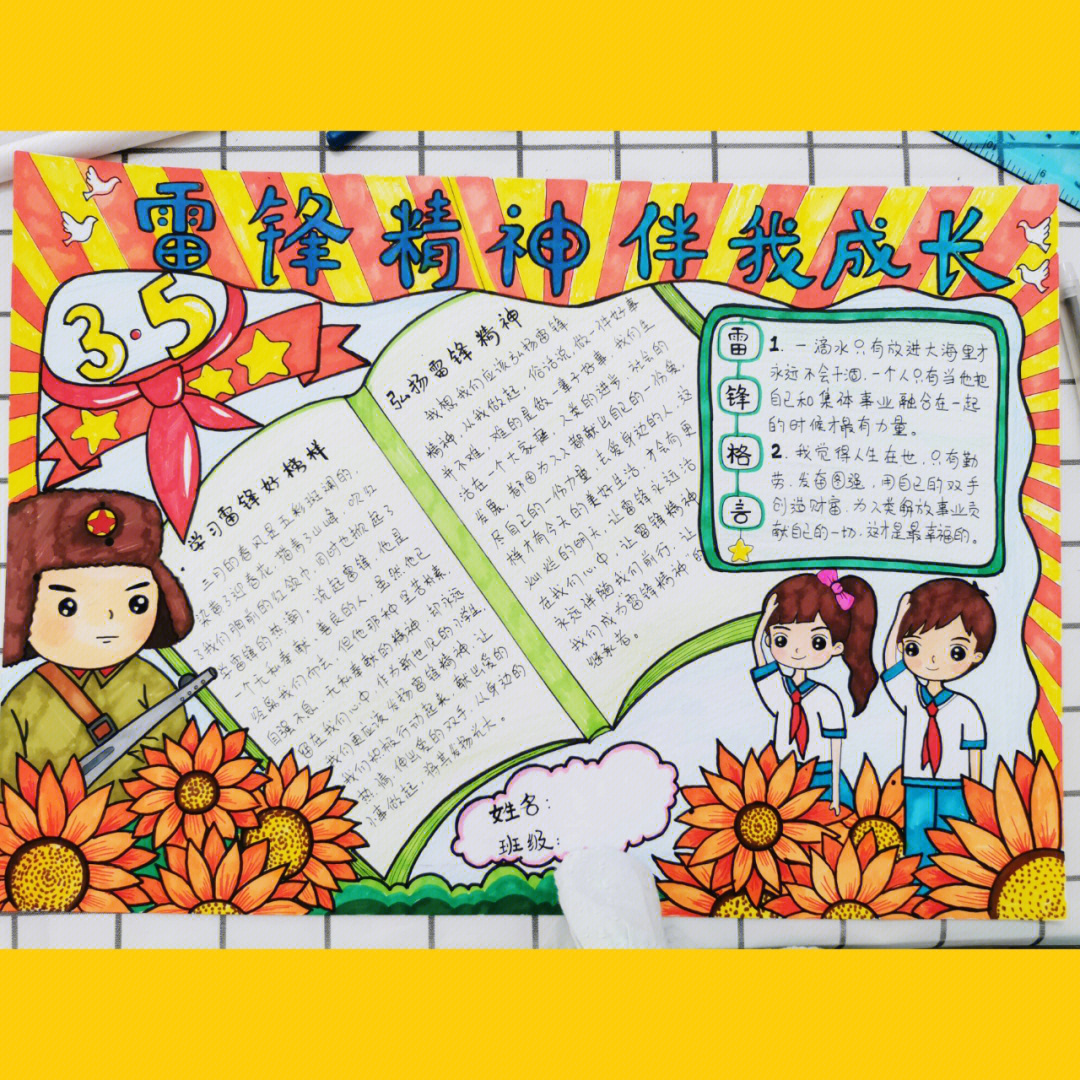 雷锋精神伴我成长
3·5
学习雷锋好榜样
三月的春风是五彩斑斓的,
染黄了迎春花,描青了山峰,吹红
了我们胸前的红领巾,同时也掀起了
学雷锋的热潮,说起雷锋,他是
一个无私奉献、善良的人,虽然他已
经离我们而去,但他那种坚苦朴素
自强不息、无私奉献的精神,却永远
留在我们心中,作为新世纪的小学生,
我们更应该发扬雷锋精神,让
我们积极行动起来,献出爱的
热情,伸出爱的双手,从身边的
小事做起,将其发扬光大。
弘扬雷锋精神
我想,我们应该弘扬雷锋
精神,从我做起,俗话说,做一件好事
并不难,难的是做一辈子好事,我们生
活在一个大家庭,人类的进步,社会的
发展,都因为人人都献出自己的一份爱
尽自己的一份力量,去爱身边的人,这
样才有今天的美好生活,才会有更
灿烂的明天,让雷锋永远活
在我们心中,让雷锋精神
永远伴随我们前行,让
我们成为雷锋精神的
继承者。
雷锋格言
1.一滴水只有放进大海里才
永远不会干涸,一个人只有当他把
自己和集体事业融合在一起
的时候才最有力量。
2.我觉得人生在世,只有勤
劳,发奋图强,用自己的双手
创造财富,为人类解放事业贡
献自己的一切,这才是最幸福的。
姓名:
班级: